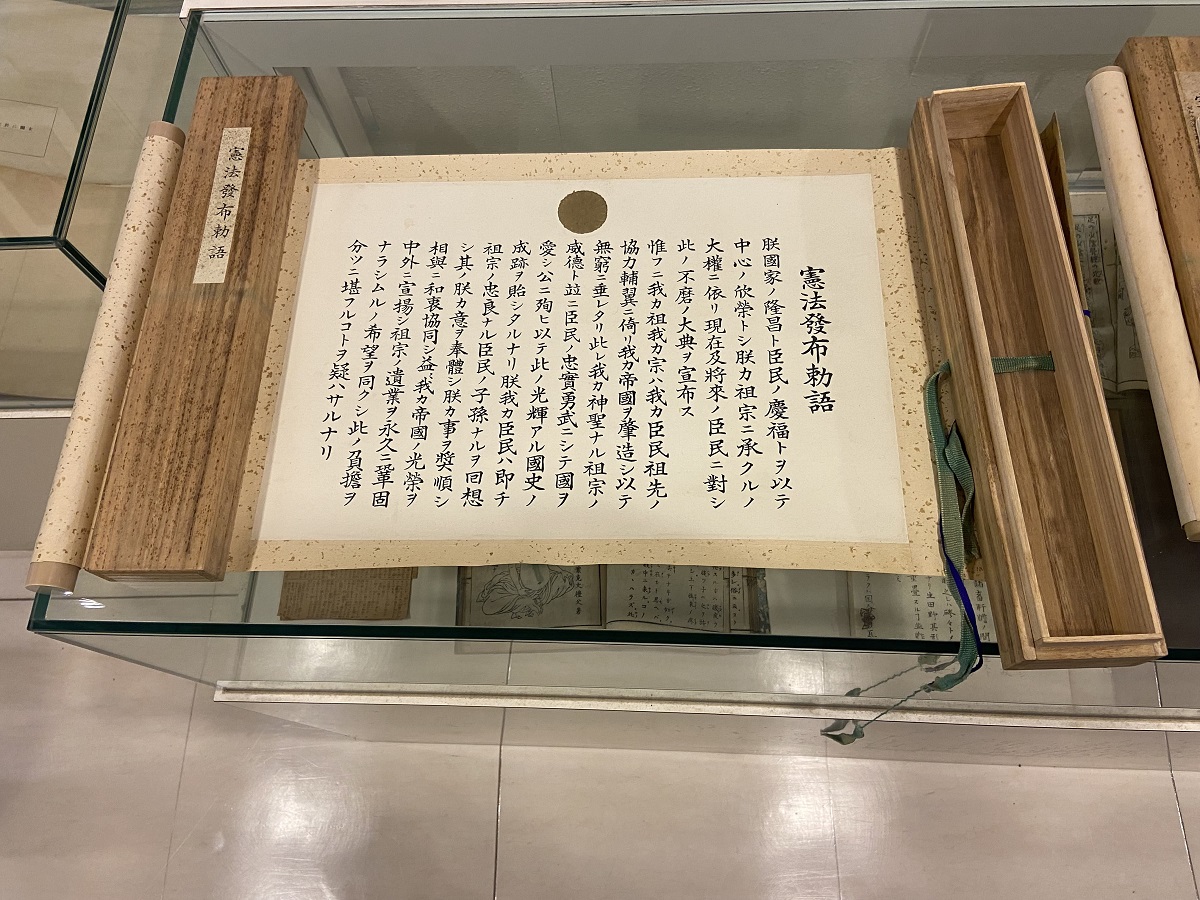 憲法發布勅語
朕國家ノ隆昌ト臣民ノ慶福トヲ以テ
中心ノ欣榮トシ朕カ祖宗ニ承クルノ
大權ニ依リ現在及將來ノ臣民ニ對シ
此ノ不磨ノ大典ヲ宣布ス
惟フニ我カ祖我カ宗ハ我カ臣民祖先ノ
協力輔翼ニ倚リ我カ帝國ヲ肇造シ以テ
無窮ニ垂レタリ此レ我カ神聖ナル祖宗ノ
威德ト竝ニ臣民ノ忠實勇武ニシテ國ヲ
愛シ公ニ殉ヒ以テ此ノ光輝アル國史ノ
成跡ヲ貽シタルナリ朕我カ臣民ハ即チ
祖宗ノ忠良ナル臣民ノ子孫ナルヲ回想
シ其ノ朕カ意ヲ奉體シ朕カ事ヲ奬順シ
相與ニ和衷協同シ益〻我カ帝國ノ光榮ヲ
中外ニ宣揚シ祖宗ノ遺業ヲ永久ニ鞏固
ナラシムルノ希望ヲ同クシ此ノ負擔ヲ
分ツニ堪フルコトヲ疑ハサルナリ
憲法發布勅語